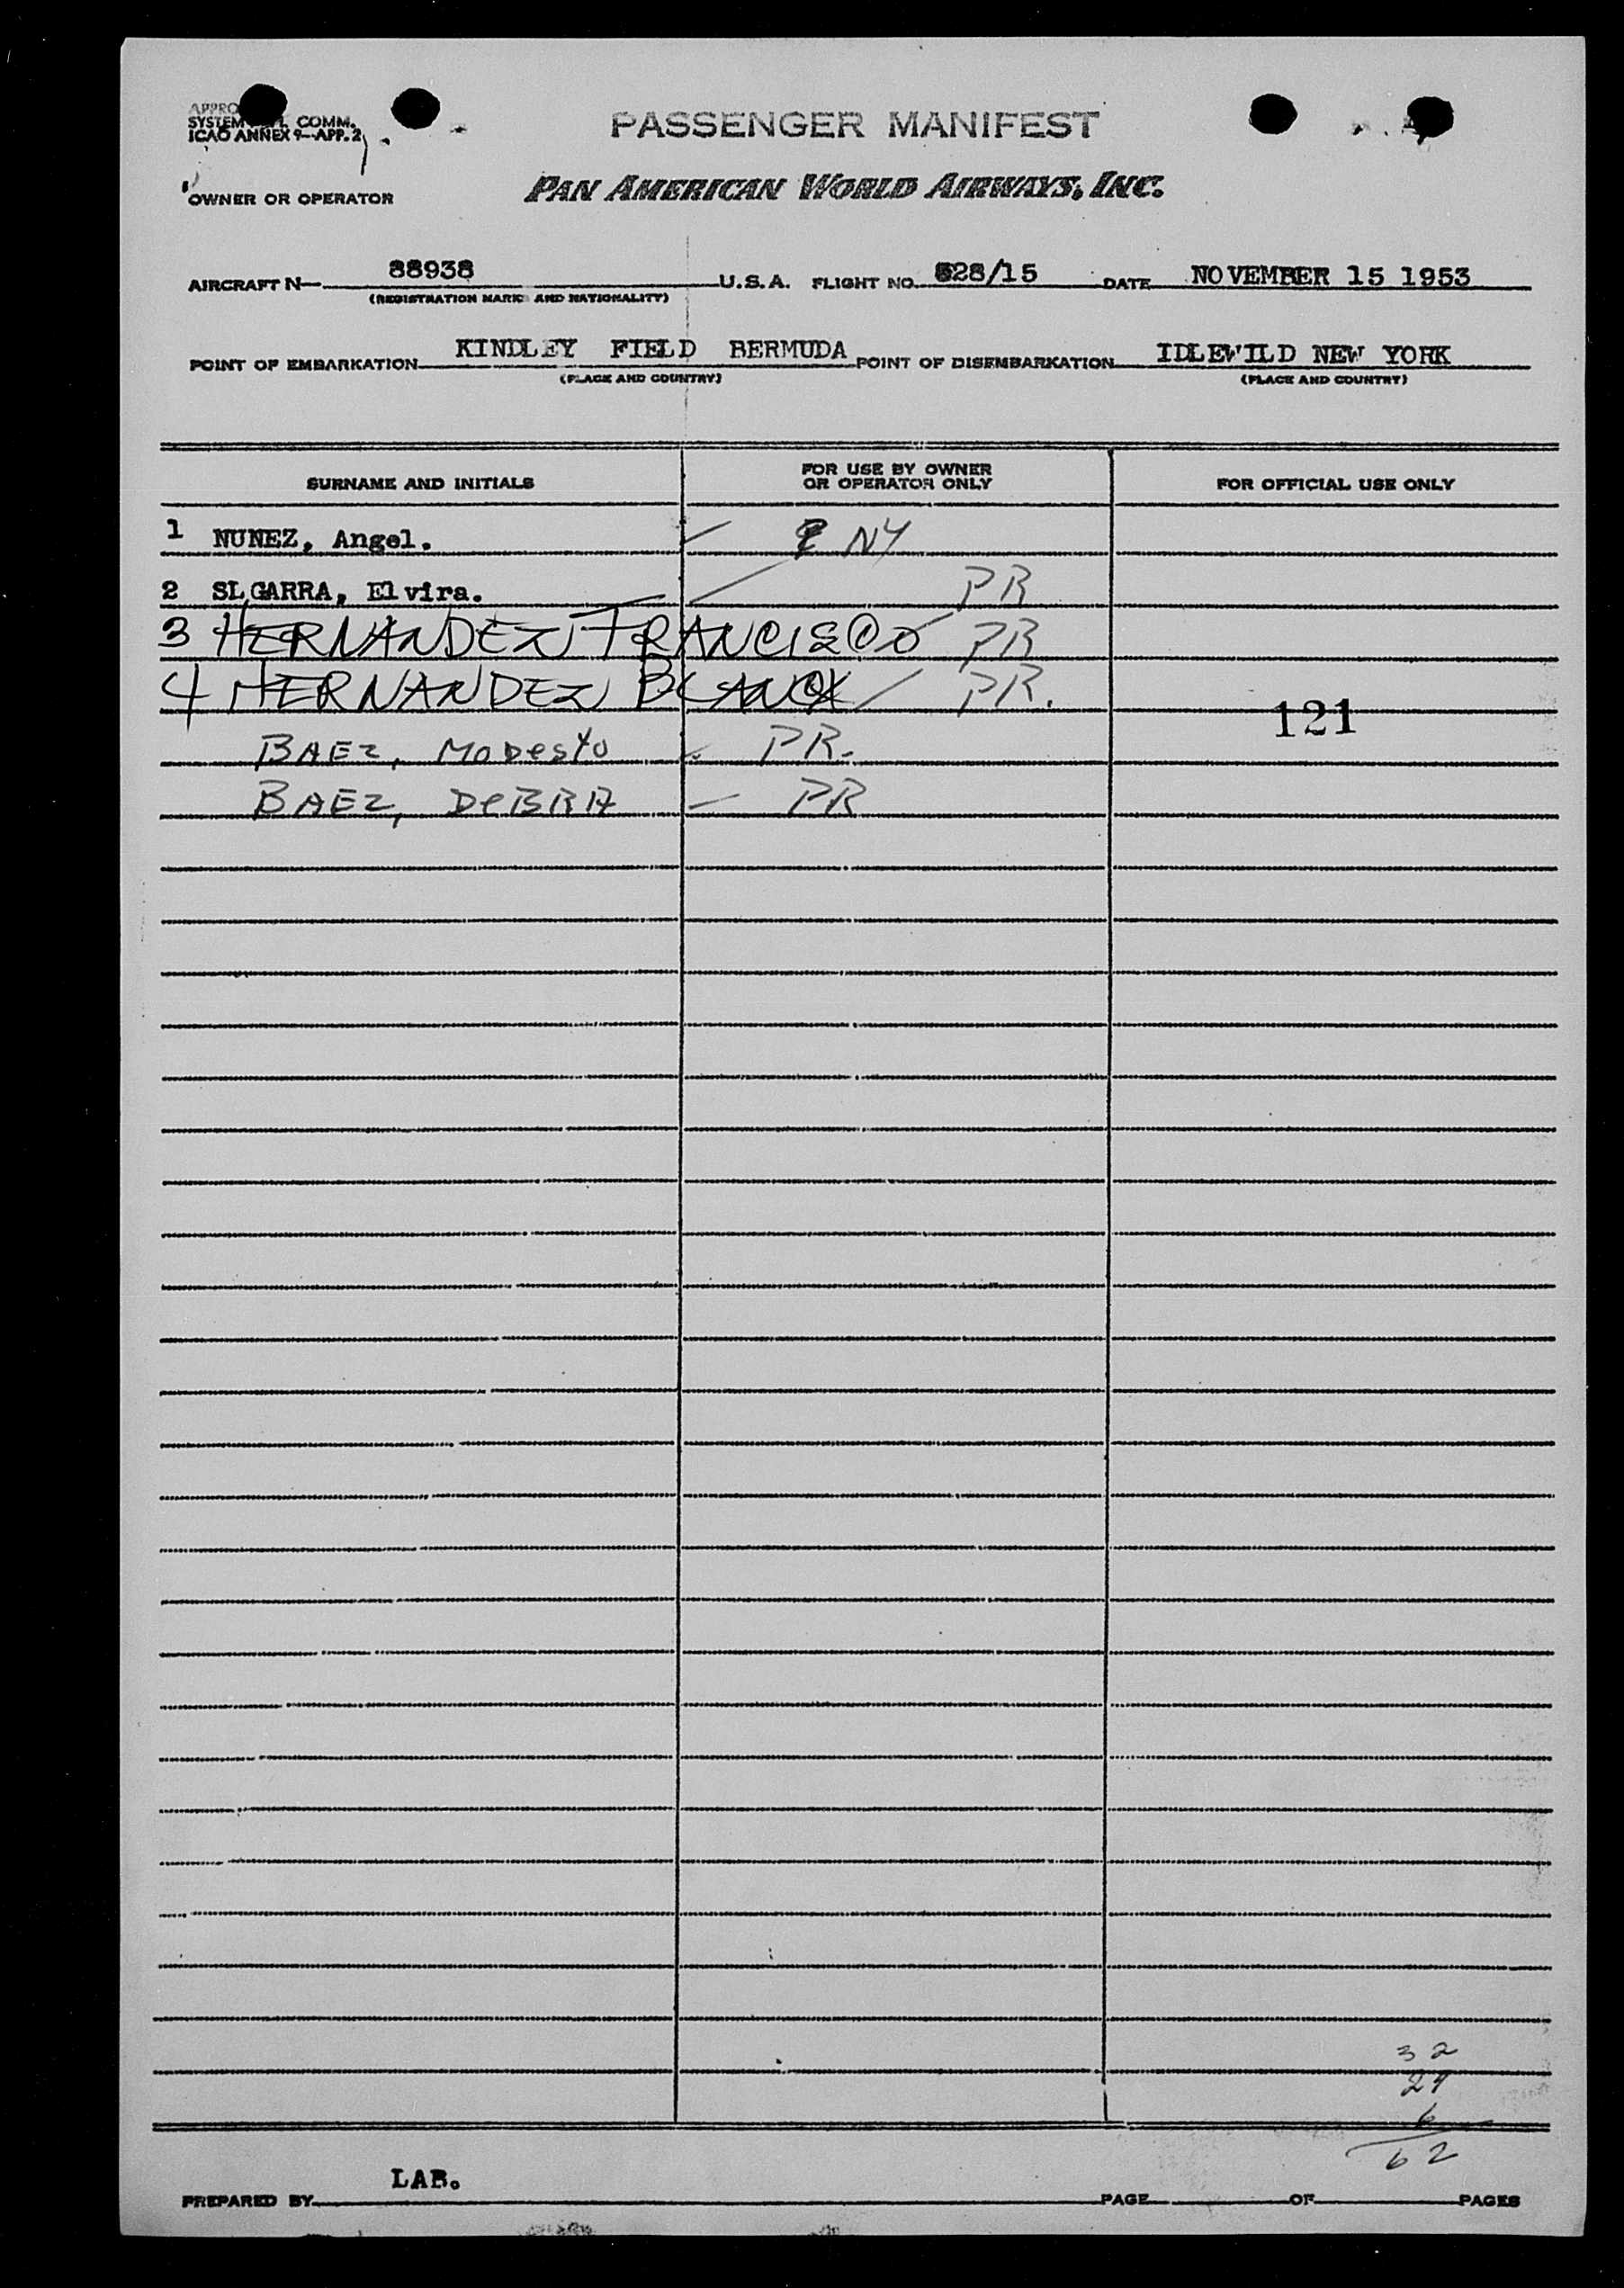 SYSTEM COMM.
ICAO ANNEX 9—APP. 2
PASSENGER MANIFEST
OWNER OR OPERATOR PAN AMERICAN WORLD AIRWAYS, INC.
AIRCRAFT N— 88938 U.S.A. FLIGHT NO. 628/15 DATE NOVEMBER 15 1953
(REGISTRATION MARK AND NATIONALITY)
POINT OF EMBARKATION KINDLEY FIELD BERMUDA POINT OF DISEMBARKATION IDLEWILD NEW YORK
(PLACE AND COUNTRY) (PLACE AND COUNTRY)
SURNAME AND INITIALS FOR USE BY OWNER OR OPERATOR ONLY FOR OFFICIAL USE ONLY
1 NUNEZ, Angel. NY
2 SLGARRA, Elvira. PR
3 HERNANDEZ FRANCISCO PR
4 HERNANDEZ BLANCA PR.
121
BAEZ, Modesto PR.
BAEZ, DeBRA PR
32
24
6
62
LAB.
PREPARED BY PAGE OF PAGES